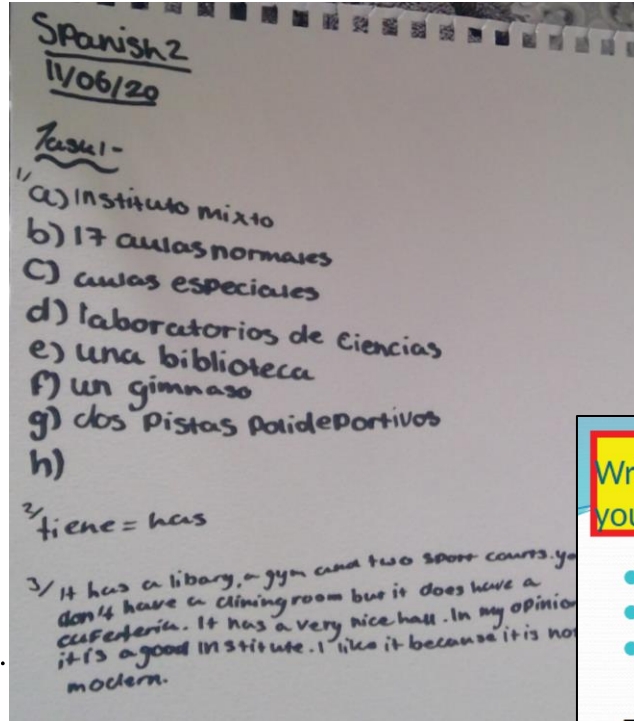 Spanish 2
11/06/20
Task 1-
1/
a) instituto mixto
b) 17 aulas normales
c) aulas especiales
d) laboratorios de ciencias
e) una biblioteca
f) un gimnaso
g) dos pistas polideportivos
h)
2/ tiene = has
3/ It has a libary, a gym and two sport courts. yo
don't have a dining room but it does have a
cafeteria. It has a very nice hall. In my opinion
it is a good institute. I like it because it is not
modern.
Wr
you